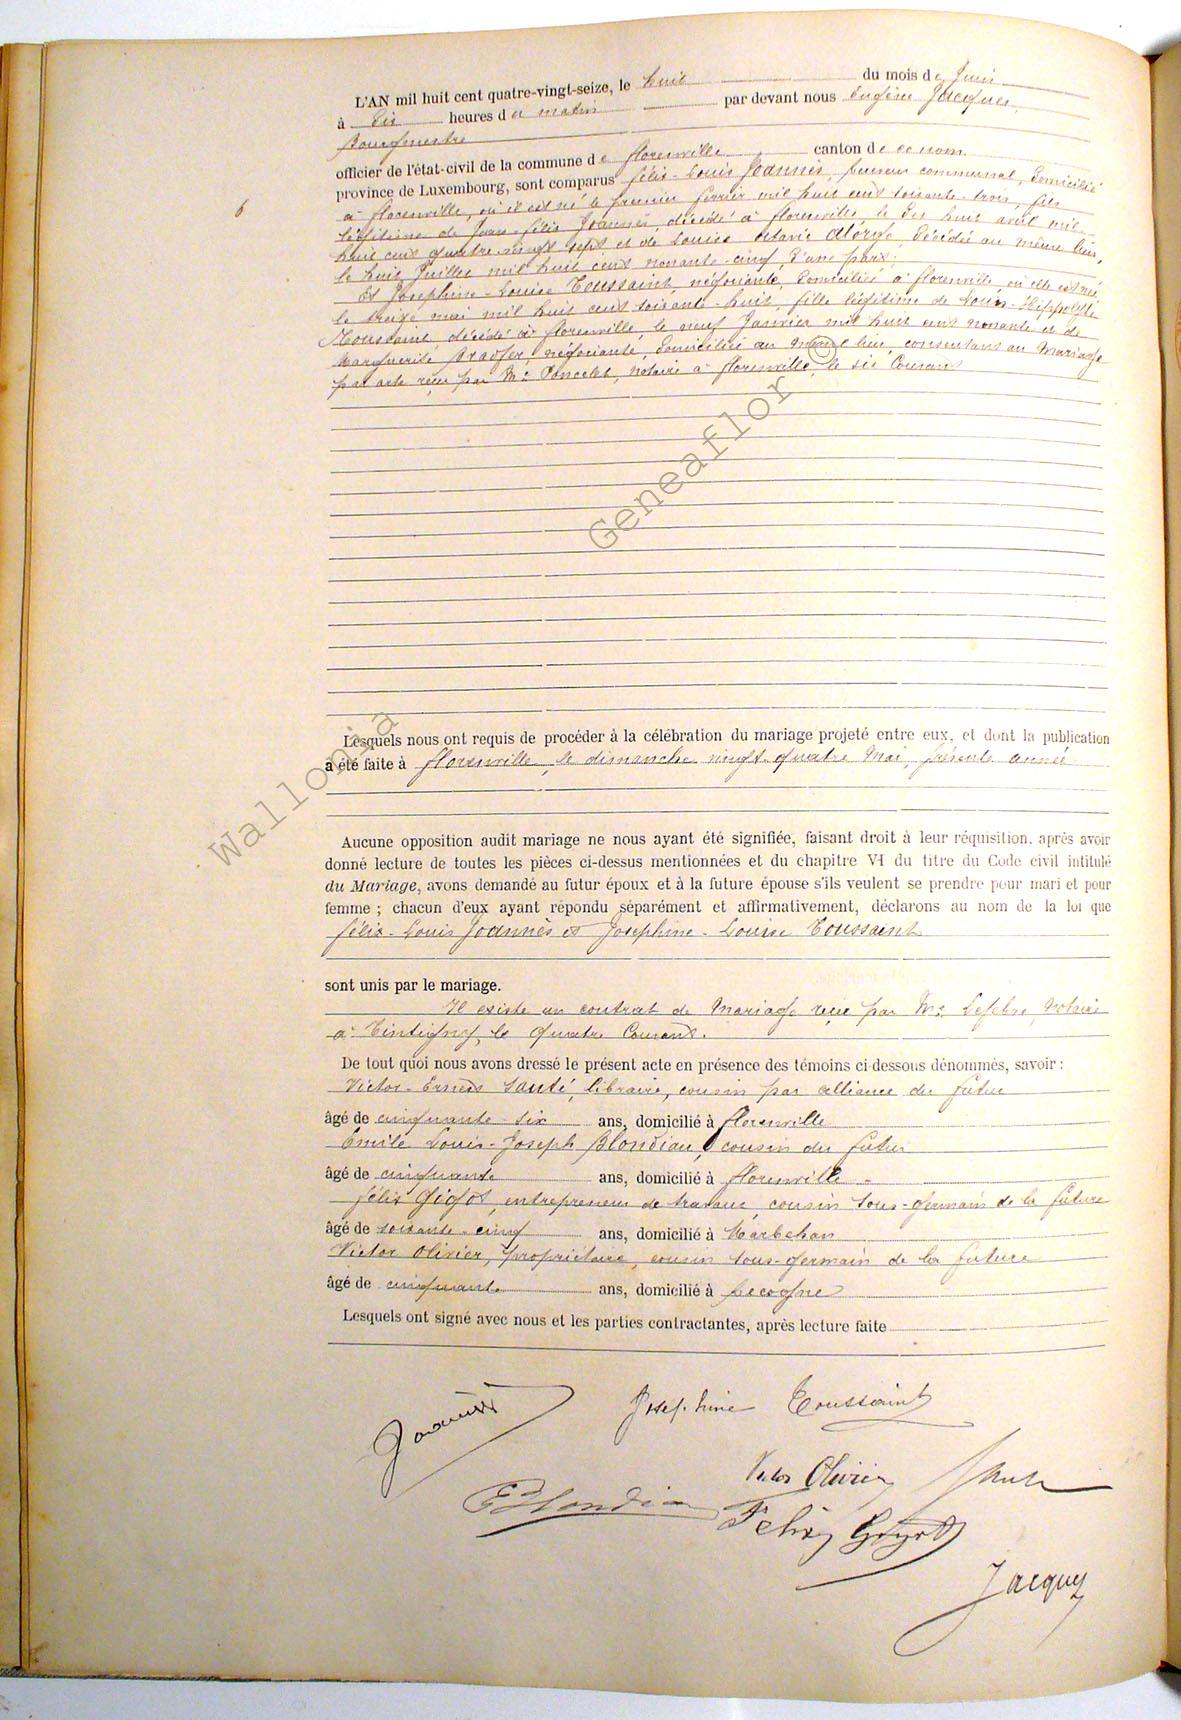 6
L'AN mil huit cent quatre-vingt-seize, le huit du mois de Juin
à dix heures du matin par devant nous Eugène Jacques,
bourgmestre
officier de l'état-civil de la commune de Florenville canton de ce nom
province de Luxembourg, sont comparus Félix-Louis Joannès, receveur communal, domicilié
à Florenville, où il est né le premier février mil huit cent soixante-trois, fils
légitime de Jean-Félix Joannès, décédé à Florenville le dix huit avril mil
huit cent quatre-vingt sept et de Louise Octavie décédée au même lieu,
le huit Juillet mil huit cent nonante-cinq, d'une part;
Et Josephine-Louise Toussaint, négociante, domiciliée à Florenville où elle est née
le treize mai mil huit cent soixante-huit, fille légitime de Louis-Hippolyte
Toussaint, décédé à Florenville le neuf Janvier mil huit cent nonante et de
Marguerite négociante, domiciliée au même lieu, consentant au Mariage
par acte reçu par Me Poncelet, notaire à Florenville, le six Courant
Lesquels nous ont requis de procéder à la célébration du mariage projeté entre eux, et dont la publication
a été faite à Florenville, le dimanche vingt-quatre Mai, présente année
Aucune opposition audit mariage ne nous ayant été signifiée, faisant droit à leur réquisition, après avoir
donné lecture de toutes les pièces ci-dessus mentionnées et du chapitre VI du titre du Code civil intitulé
du Mariage, avons demandé au futur époux et à la future épouse s'ils veulent se prendre pour mari et pour
femme ; chacun d'eux ayant répondu séparément et affirmativement, déclarons au nom de la loi que
Félix-Louis Joannès et Josephine-Louise Toussaint
sont unis par le mariage.
Il existe un contrat de Mariage reçu par Me Lefebre, notaire
à Tintigny, le quatre Courant.
De tout quoi nous avons dressé le présent acte en présence des témoins ci-dessous dénommés, savoir :
Victor-Ernest Santé, libraire, cousin par alliance du futur
âgé de cinquante-six ans, domicilié à Florenville
Emile Louis-Joseph Blondiau, cousin du futur
âgé de cinquante ans, domicilié à Florenville
Félix Gigot, entrepreneur de travaux, cousin sous-germain de la future
âgé de soixante-cinq ans, domicilié à Marbehan
Victor Olivier, propriétaire, cousin sous-germain de la future
âgé de cinquante ans, domicilié à Recogne
Lesquels ont signé avec nous et les parties contractantes, après lecture faite
Joannès
Josephine Toussaint
Victor Olivier
Santé
E Blondiau
Felix Gigot
Jacques
Wallonia Geneaflor ©